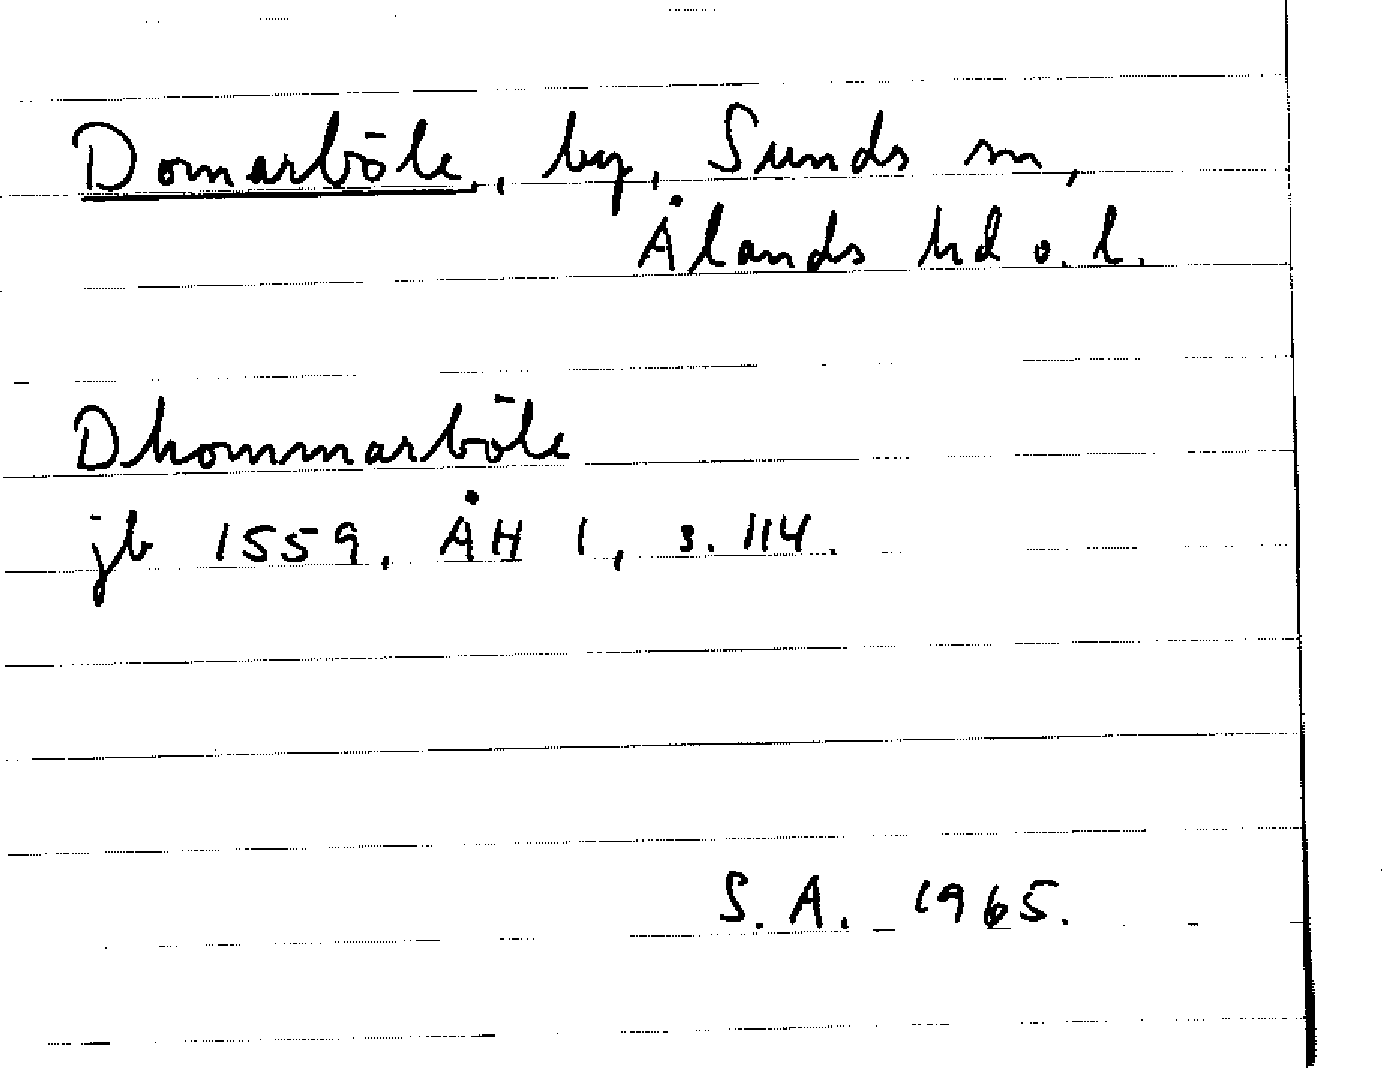 Domarböle, by, Sunds sn,
Ålands hd o. l.
Dhommarböle
jb 1559. ÅH 1, s. 114.
S. A. 1965.